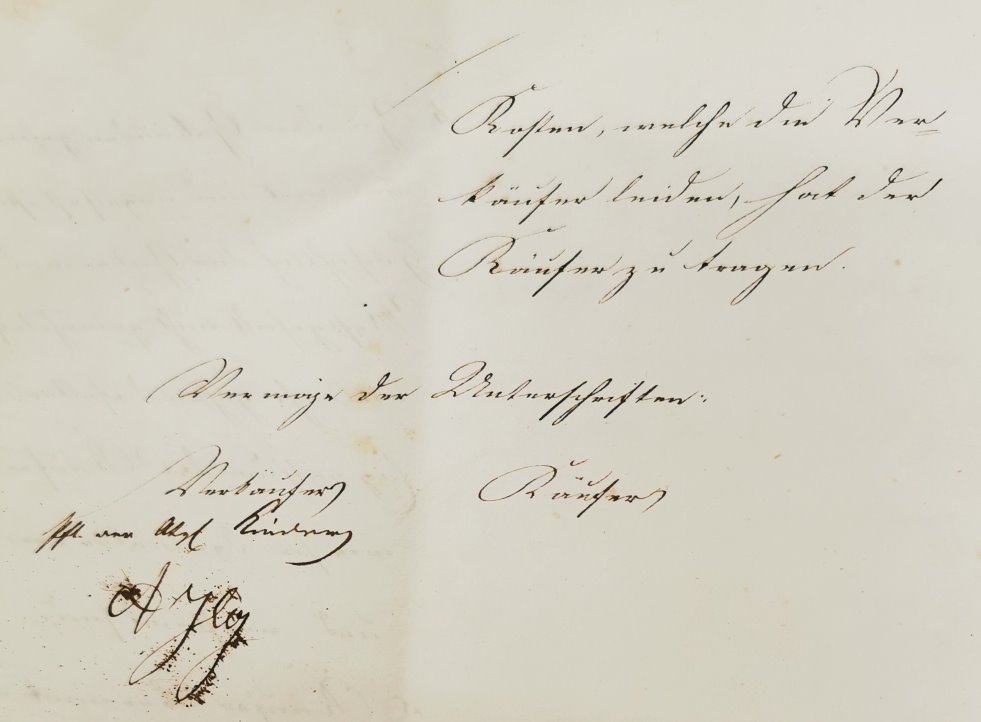 Kosten, welche die Ver-
käufer leiden, hat der
Käufer zu tragen.
Vermöge der Unterschriften:
Verkäufer Käufer
Pfl. der Kinder